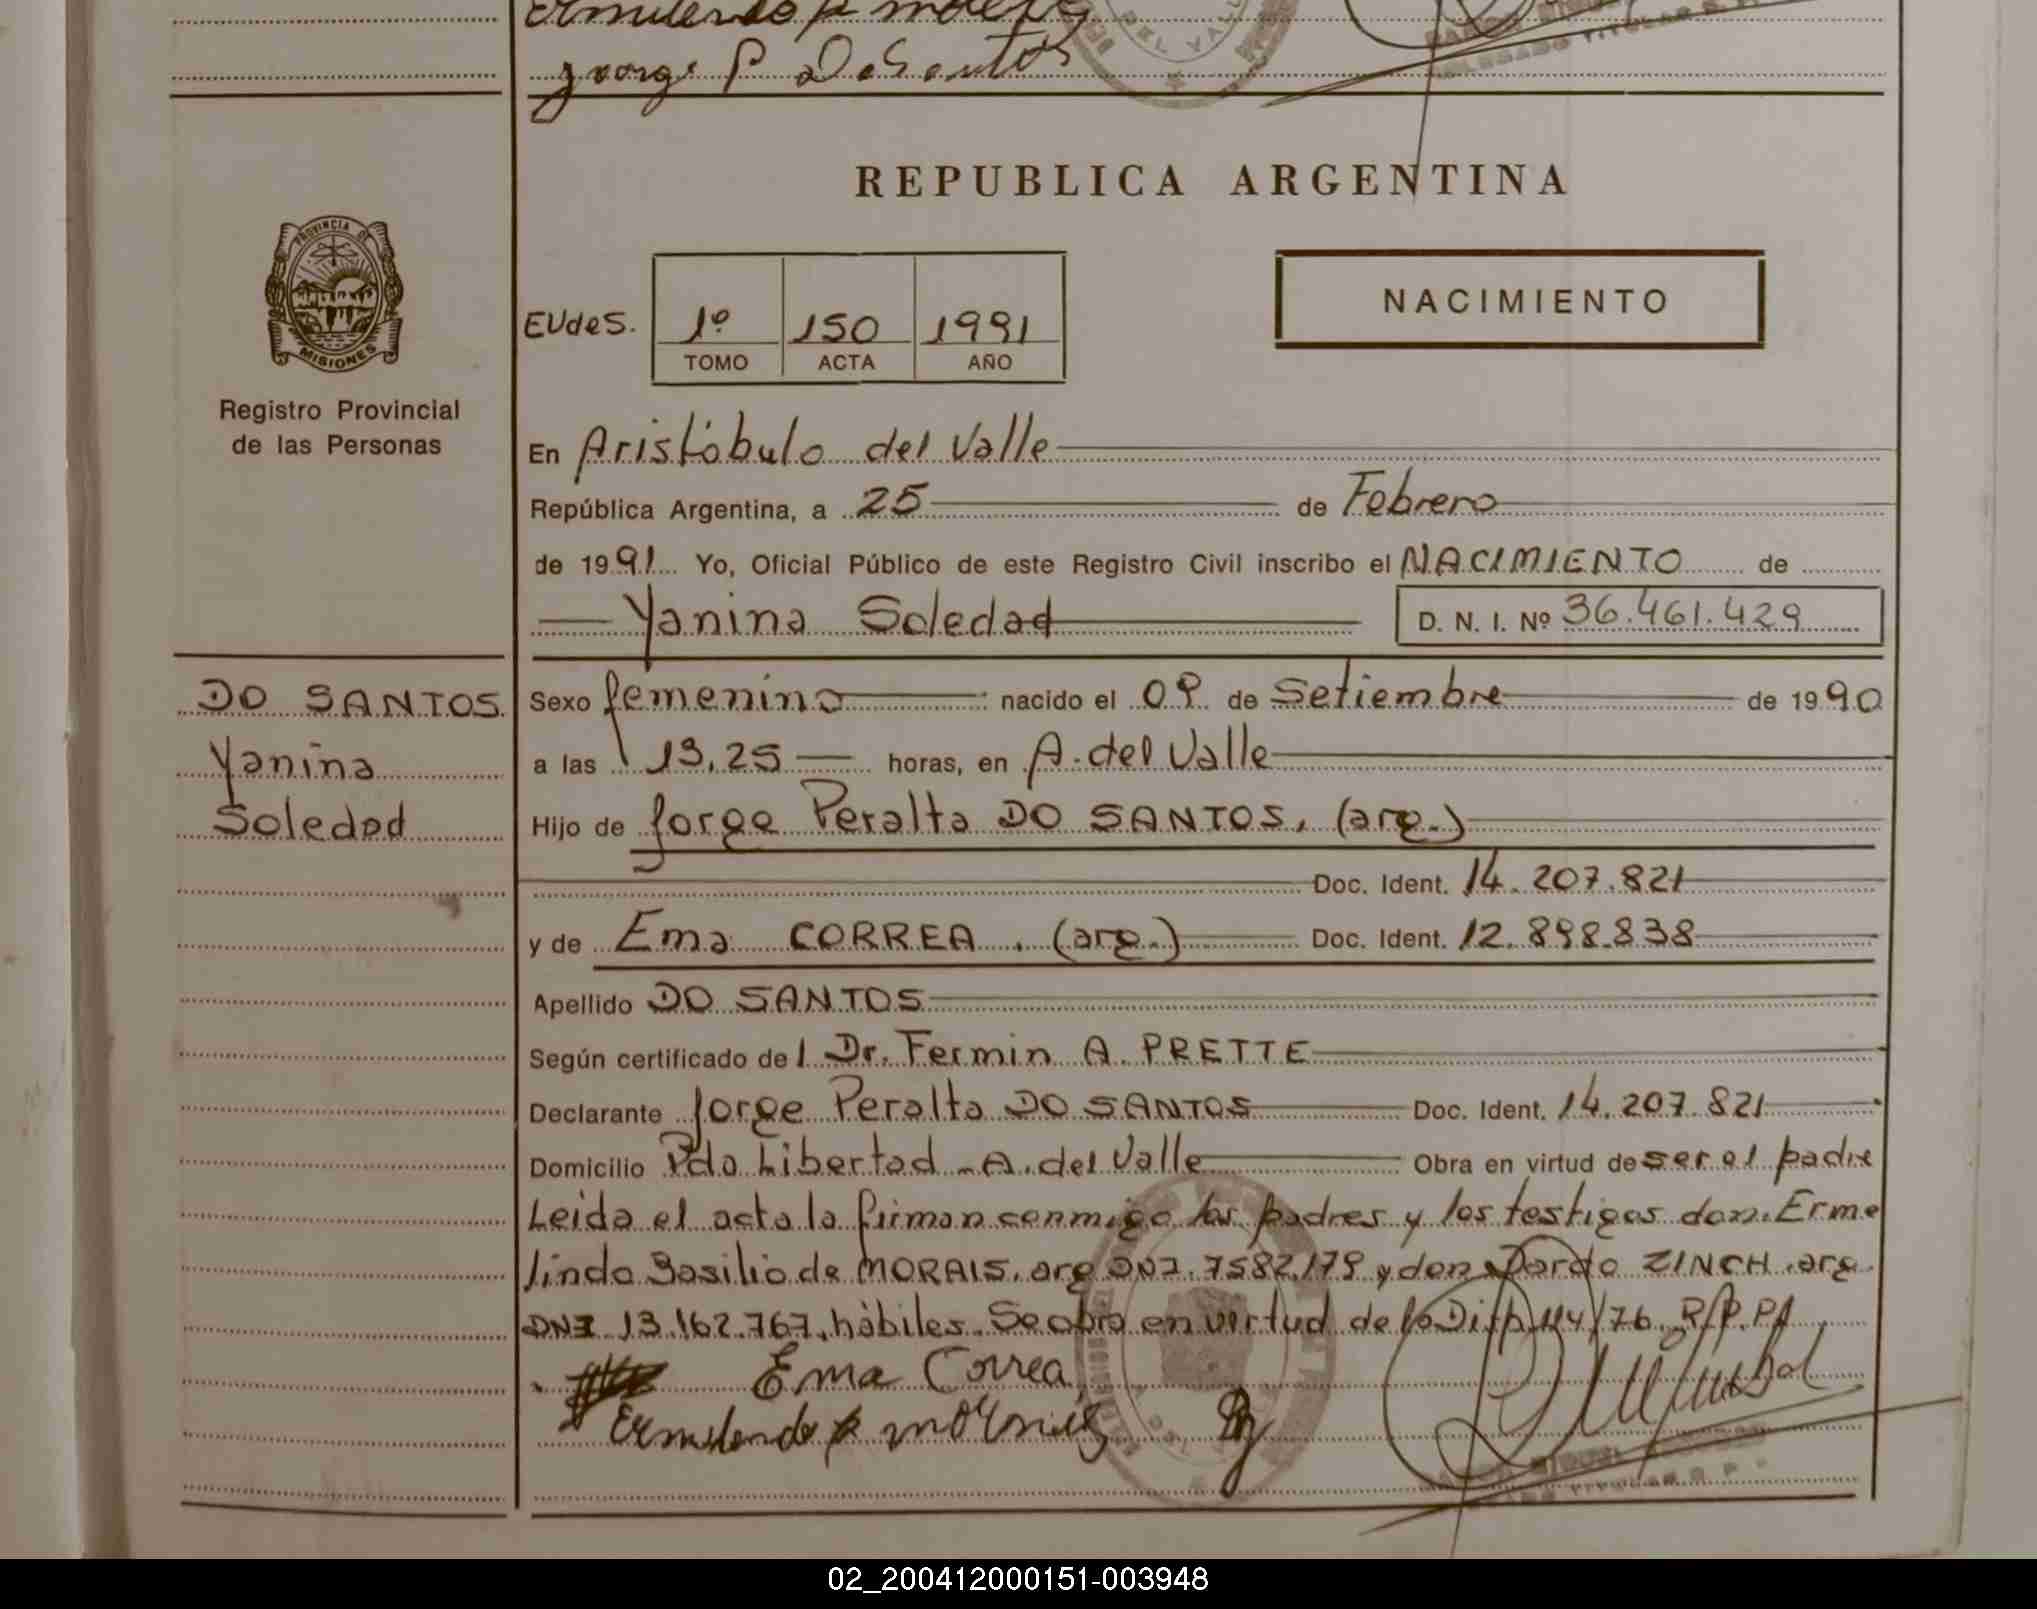 Jorge P DoSantos
REPUBLICA ARGENTINA
PROVINCIA DE
MISIONES
Registro Provincial
de las Personas
EUdeS. 1º 150 1991
TOMO ACTA AÑO
NACIMIENTO
En Aristóbulo del Valle
República Argentina, a 25 de Febrero
de 1991 Yo, Oficial Público de este Registro Civil inscribo el NACIMIENTO de
Yanina Soledad D. N. I. Nº 36.461.429
DO SANTOS
Yanina
Soledad
Sexo femenino nacido el 09 de Setiembre de 1990
a las 13,25 horas, en A. del Valle
Hijo de Jorge Peralta DO SANTOS, (arg.)
Doc. Ident. 14.207.821
y de Ema CORREA. (arg.) Doc. Ident. 12.898.838
Apellido DO SANTOS
Según certificado del Dr. Fermin A. PRETTE
Declarante Jorge Peralta DO SANTOS Doc. Ident. 14.207.821
Domicilio Pdo Libertad - A. del Valle Obra en virtud de ser el padre
Leida el acta la firman conmigo los padres y los testigos don. Erme
lindo Basilio de MORAIS. arg DNI. 7582.179 y don Dardo ZINCH. arg.
DNI 13.162.767, hàbiles. Se obra en virtud de la Disp. 114/76. R.P.P.
Ema Correa
02_200412000151-003948